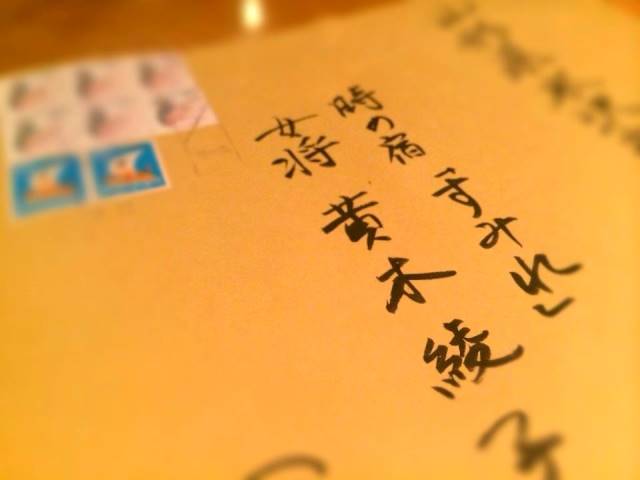 時の宿「すみれ」
女将 黄木綾子